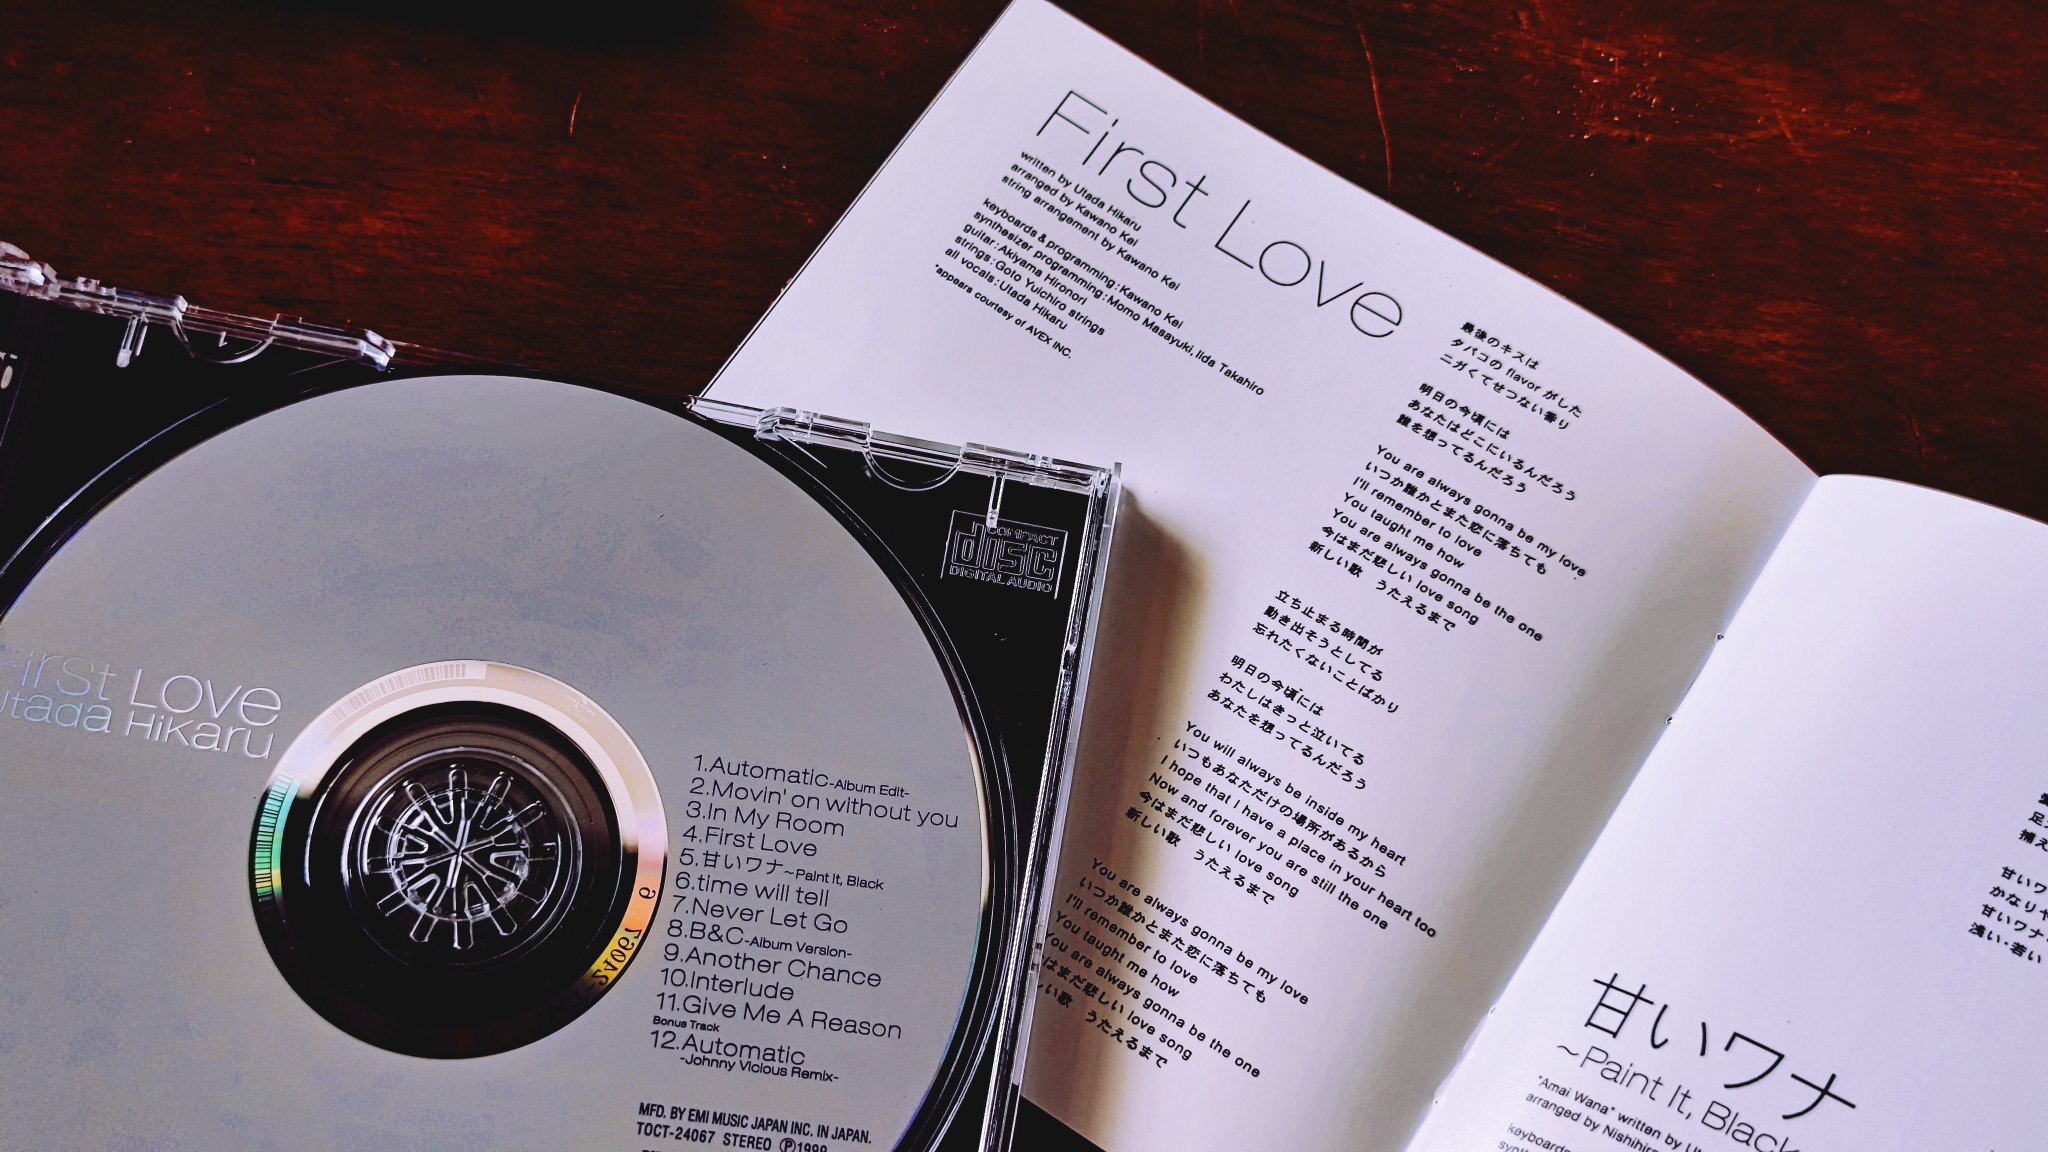 First Love
Utada Hikaru
1.Automatic-Album Edit-
2.Movin' on without you
3.In My Room
4.First Love
5.甘いワナ~Paint It, Black
6.time will tell
7.Never Let Go
8.B&C-Album Version-
9.Another Chance
10.Interlude
11.Give Me A Reason
Bonus Track
12.Automatic
-Johnny Vicious Remix-
MFD. BY EMI MUSIC JAPAN INC. IN JAPAN.
TOCT-24067 STEREO Ⓟ1999
-24067
COMPACT
disc
DIGITAL AUDIO
First Love
written by Utada Hikaru
arranged by Kawano Kei
string arrangement by Kawano Kei
keyboards & programming : Kawano Kei
synthesizer programming : Momo Masayuki, Iida Takahiro
guitar : Akiyama Hironori
strings : Goto Yuichiro strings
all vocals : Utada Hikaru
*appears courtesy of AVEX INC.
最後のキスは
タバコの flavor がした
ニガくてせつない香り
明日の今頃には
あなたはどこにいるんだろう
誰を想ってるんだろう
You are always gonna be my love
いつか誰かとまた恋に落ちても
I'll remember to love
You taught me how
You are always gonna be the one
今はまだ悲しい love song
新しい歌 うたえるまで
立ち止まる時間が
動き出そうとしてる
忘れたくないことばかり
明日の今頃には
わたしはきっと泣いてる
あなたを想ってるんだろう
You will always be inside my heart
いつもあなただけの場所があるから
I hope that I have a place in your heart too
Now and forever you are still the one
今はまだ悲しい love song
新しい歌 うたえるまで
You are always gonna be my love
いつか誰かとまた恋に落ちても
I'll remember to love
You taught me how
You are always gonna be the one
はまだ悲しい love song
しい歌 うたえるまで
足
捕え
甘いワ
かなりヤ
甘いワナ
浅い・若い
甘いワナ
~Paint It, Black
"Amai Wana" written by
arranged by